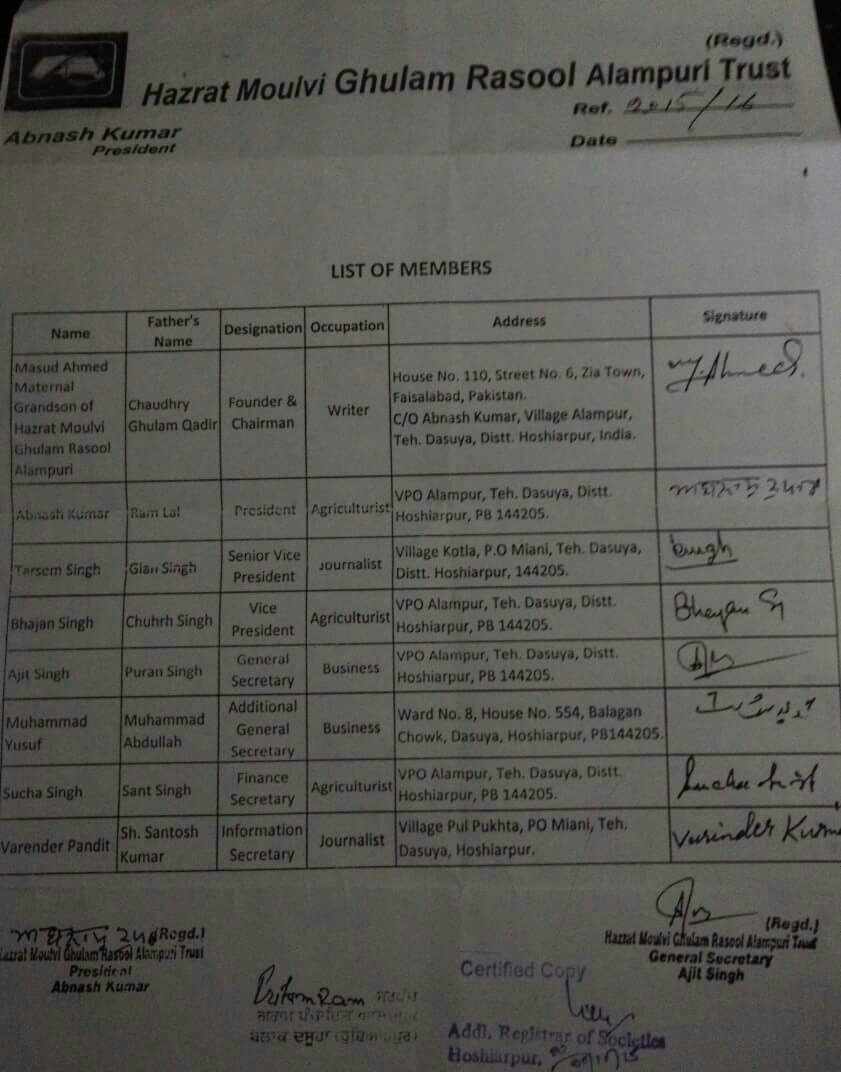 (Regd.)
Hazrat Moulvi Ghulam Rasool Alampuri Trust
Ref. 2015/16
Abnash Kumar
President
Date
LIST OF MEMBERS
Name Father's Name Designation Occupation Address Signature
Masud Ahmed Maternal Grandson of Hazrat Moulvi Ghulam Rasool Alampuri Chaudhry Ghulam Qadir Founder & Chairman Writer House No. 110, Street No. 6, Zia Town, Faisalabad, Pakistan. C/O Abnash Kumar, Village Alampur, Teh. Dasuya, Distt. Hoshiarpur, India. M.Ahmed.
Abnash Kumar Ram Lal President Agriculturist VPO Alampur, Teh. Dasuya, Distt. Hoshiarpur, PB 144205.
Tarsem Singh Gian Singh Senior Vice President Journalist Village Kotla, P.O Miani, Teh. Dasuya, Distt. Hoshiarpur, 144205.
Bhajan Singh Chuhrh Singh Vice President Agriculturist VPO Alampur, Teh. Dasuya, Distt. Hoshiarpur, PB 144205. Bhajan S
Ajit Singh Puran Singh General Secretary Business VPO Alampur, Teh. Dasuya, Distt. Hoshiarpur, PB 144205.
Muhammad Yusuf Muhammad Abdullah Additional General Secretary Business Ward No. 8, House No. 554, Balagan Chowk, Dasuya, Hoshiarpur, PB144205.
Sucha Singh Sant Singh Finance Secretary Agriculturist VPO Alampur, Teh. Dasuya, Distt. Hoshiarpur, PB 144205. Sucha
Varender Pandit Sh. Santosh Kumar Information Secretary Journalist Village Pul Pukhta, PO Miani, Teh. Dasuya, Hoshiarpur. Varinder Kuma
(Regd.)
Hazrat Moulvi Ghulam Rasool Alampuri Trust
President
Abnash Kumar
(Regd.)
Hazrat Moulvi Ghulam Rasool Alampuri Trust
General Secretary
Ajit Singh
Pritam Ram ਸਰਪੰਚ
ਗਰਾਮ ਪੰਚਾਇਤ ਆਲਮਪੁਰ
ਬਲਾਕ ਦਸੂਹਾ (ਹੁਸ਼ਿਆਰਪੁਰ)
Certified Copy
Addl. Registrar of Societies
Hoshiarpur.